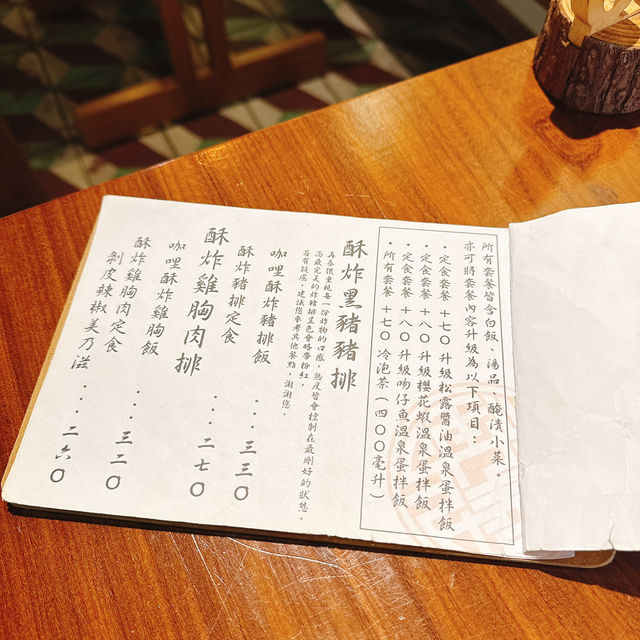 所有套餐皆含白飯、湯品、醃漬小菜。
亦可將套餐內容升級為以下項目：
・定食套餐 +七〇 升級松露醬油溫泉蛋拌飯
・定食套餐 +八〇 升級櫻花蝦溫泉蛋拌飯
・定食套餐 +八〇 升級吻仔魚溫泉蛋拌飯
・所有套餐 +七〇 冷泡茶(四〇〇毫升)
酥炸黑豬豬排
每一份炸物的口感，皆會控制在最剛好的狀態，
而最完美的炸豬排呈色會略帶粉紅，
若有疑慮，建議您參考其他餐點，謝謝您。
咖哩酥炸豬飯 ‧‧‧‧三三〇
酥炸豬排定食 ‧‧‧‧二七〇
酥炸雞胸肉排
咖哩酥炸雞胸飯 ‧‧‧‧三二〇
酥炸雞胸肉定食 ‧‧‧‧二六〇
剝皮辣椒美乃滋